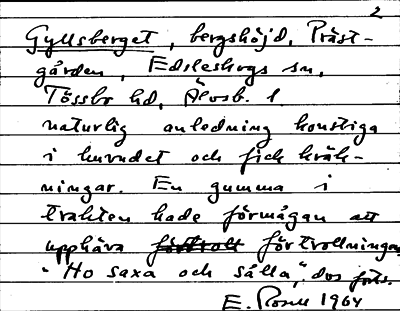 2
Gyllsberget, bergshöjd, Präst-
gården, Edsleskogs sn,
Tössbo hd, Älvsb. l
naturlig anledning konstiga
i huvudet och fick kräk-
ningar. En gumma i
trakten hade förmågan att
upphäva förtroll förtrollningen
"Ho saxa och sålla", dvs forts.
E. Rosell 1964